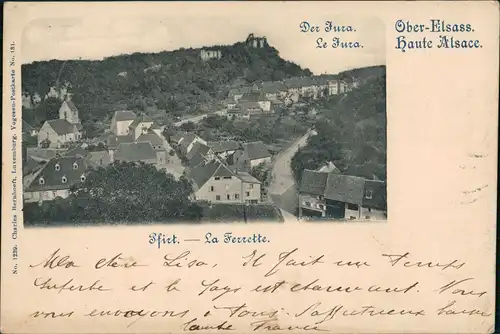 Der Jura.
Le Jura.
Ober-Elsass.
Haute Alsace.
No. 1239. Charles Bernhoeft, Luxemburg, Vogesen-Postkarte No. 131.
Pfirt. — La Ferrette.
Ma chère Lisa — Il fait un temps
superbe et le pays est charmant. Nous
vous envoyons à tous